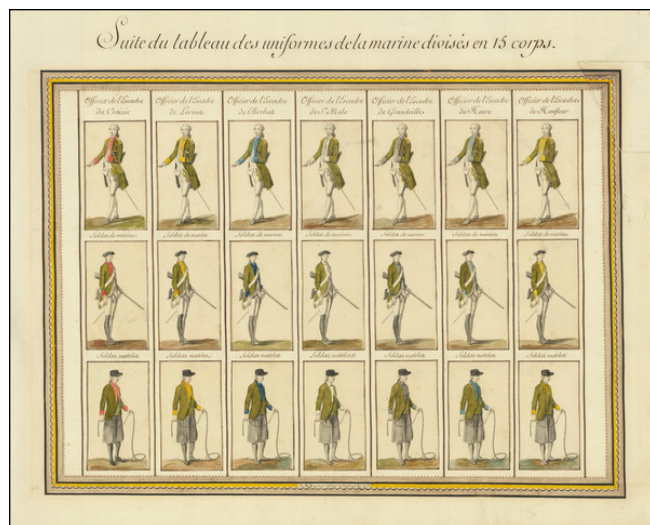 Suite du tableau des uniformes de la marine divisés en 15 corps.
Officier de l'Escadre du Croisic
Officier de l'Escadre de Lorient
Officier de l'Escadre de
Officier de l'Escadre de St Malo
Officier de l'Escadre de Grandvilles
Officier de l'Escadre du Havre
Officier de l'Escadre de Honfleur
Soldat de marine
Soldat de marine
Soldat de marine
Soldat de marine
Soldat de marine
Soldat de marine
Soldat de marine
Soldat matelot
Soldat matelot
Soldat matelot
Soldat matelot
Soldat matelot
Soldat matelot
Soldat matelot